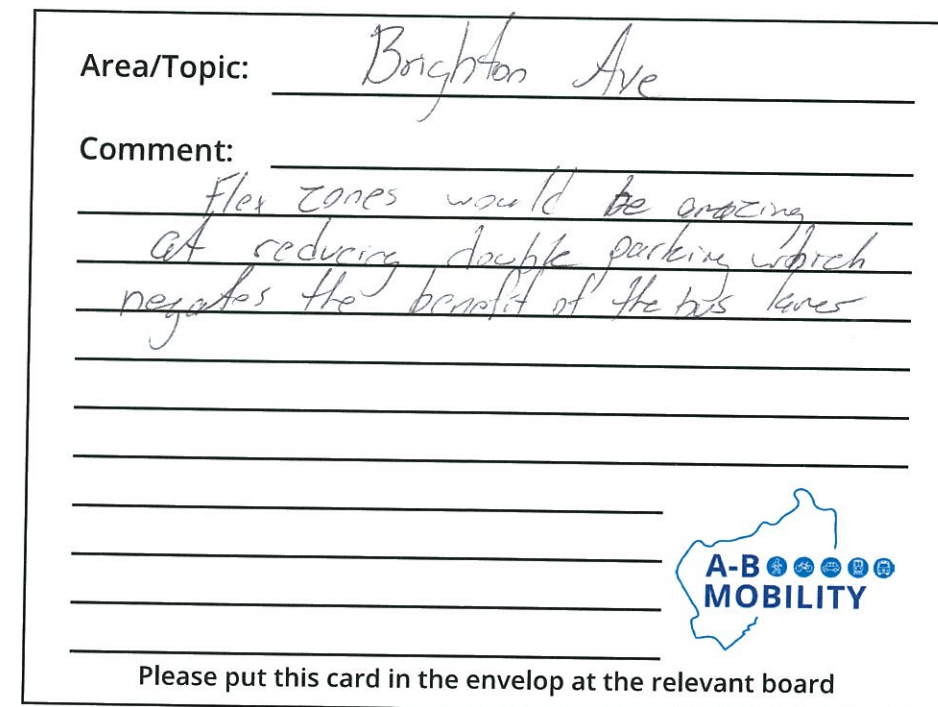 Area/Topic: Brighton Ave
Comment:
Flex zones would be amazing
at reducing double parking which
negates the benefit of the bus lanes
A-B
MOBILITY
Please put this card in the envelop at the relevant board